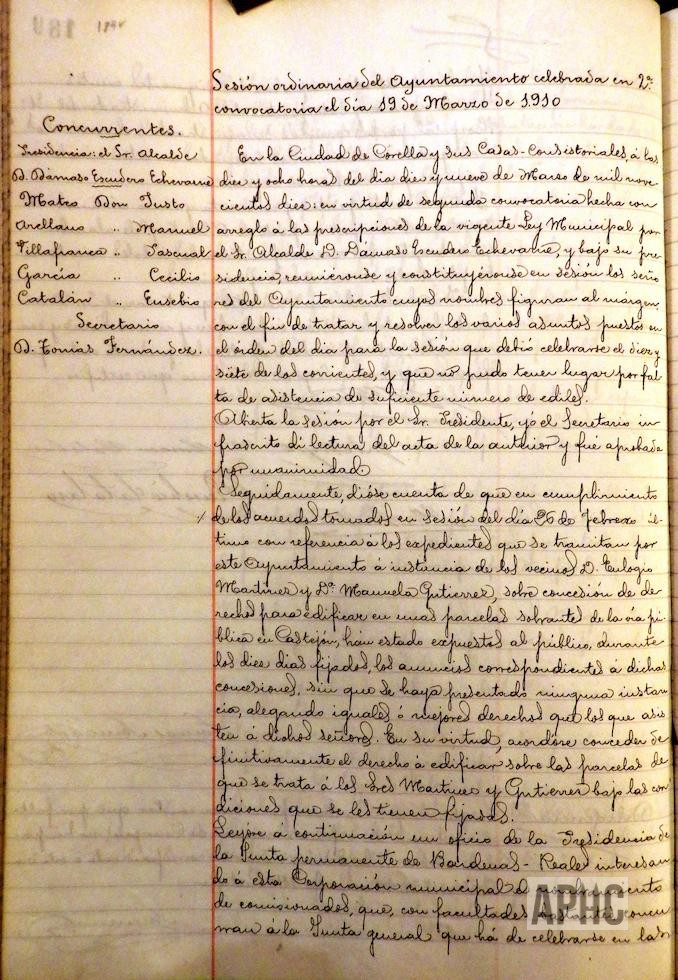 Sesión ordinaria del Ayuntamiento celebrada en 2ª
convocatoria el día 19 de Marzo de 1.910
Concurrentes.
Presidencia: el Sr. Alcalde
D. Dámaso Escudero Echevarne
Mateo Don Justo
Arellano " Manuel
Villafranca " Pascual
García " Cecilio
Catalán " Eusebio
Secretario
D. Tomás Fernández.
En la Ciudad de Corella y sus Casas-Consistoriales, á las
diez y ocho horas del día diez y nueve de Marzo de mil nove-
cientos diez: en virtud de segunda convocatoria hecha con
arreglo á las prescripciones de la vigente Ley Municipal por
el Sr. Alcalde D. Dámaso Escudero Echevarne, y bajo su pre-
sidencia, reuniéronse y constituyéronse en sesión los seño-
res del Ayuntamiento cuyos nombres figuran al márgen,
con el fin de tratar y resolver los varios asuntos puestos en
el órden del dia para la sesión que debió celebrarse el diez y
siete de los corrientes, y que no pudo tener lugar por fal-
ta de asistencia de suficiente número de ediles.
Abierta la sesión por el Sr. Presidente, yó el Secretario in-
frascrito dí lectura del acta de la anterior y fué aprobada
por unanimidad.
Seguidamente, dióse cuenta de que en cumplimiento
de los acuerdos tomados en sesión del día 26 de Febrero úl-
timo con referencia á los expedientes que se tramitan por
este Ayuntamiento á instancia de los vecinos D. Eulogio
Martinez y Dª Manuela Gutierrez, sobre concesión de de-
rechos para edificar en unas parcelas sobrantes de la vía pú-
blica en Castejón, hán estado expuestos al público, durante
los diez dias fijados, los anuncios correspondientes á dichas
concesiones, sin que se haya presentado ninguna instan-
cia, alegando iguales ó mejores derechos que los que asis-
ten á dichos señores. En su virtud, acordóse conceder de-
finitivamente el derecho á edificar sobre las parcelas de
que se trata á los Sres Martinez y Gutierrez bajo las con-
diciones que se les tienen fijadas.
Leyóse á continuación un oficio de la Presidencia de
la Junta permanente de Bardenas-Reales interesan-
do á esta Corporación municipal el nombramiento
de comisionados, que, con facultades bastantes, concu-
rran á la Junta general que há de celebrarse en las
APHC